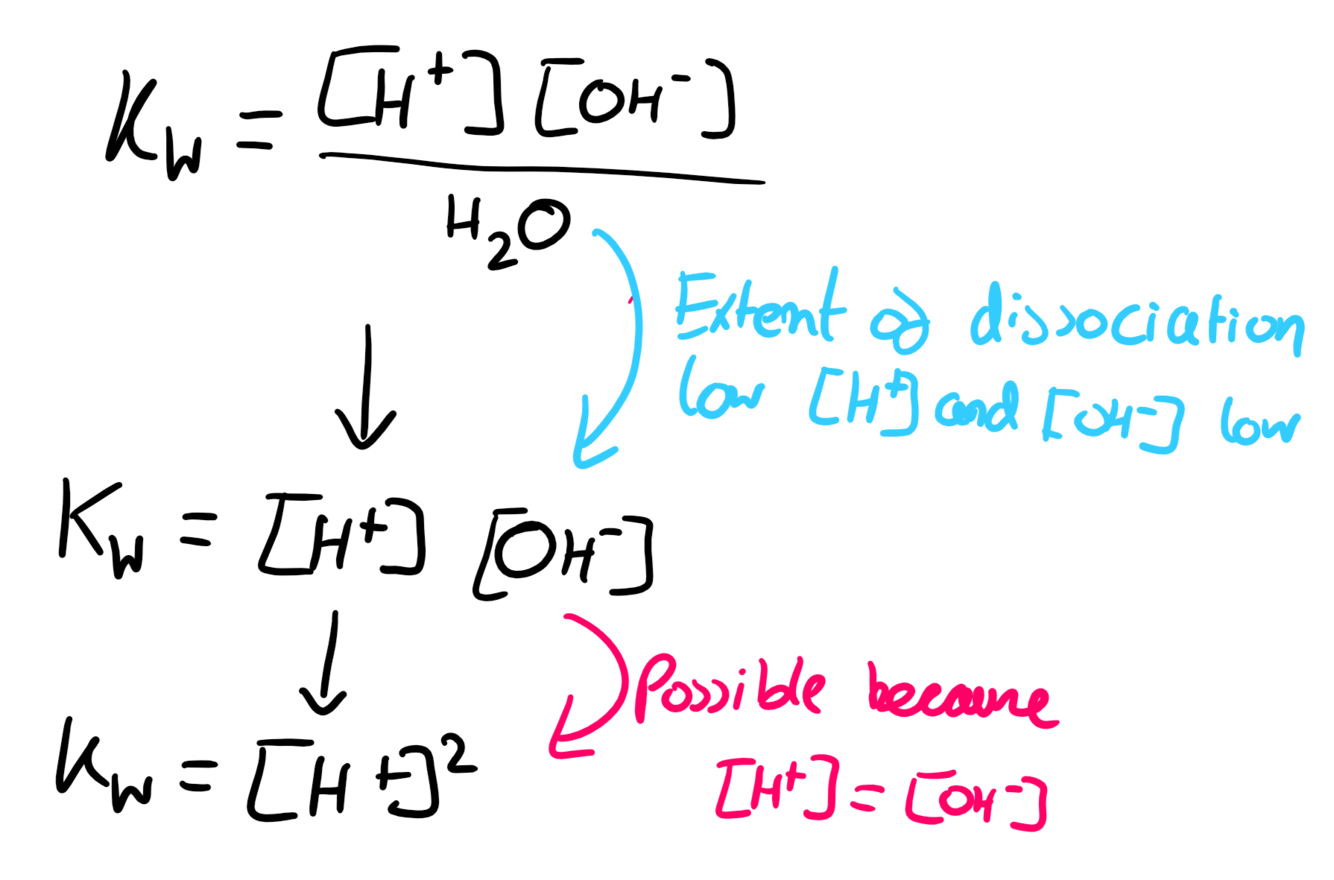 Kw = [H⁺] [OH⁻]
H₂O
Extent of dissociation
low [H⁺] and [OH⁻] low
Kw = [H⁺] [OH⁻]
Possible because
[H⁺] = [OH⁻]
Kw = [H⁺]²